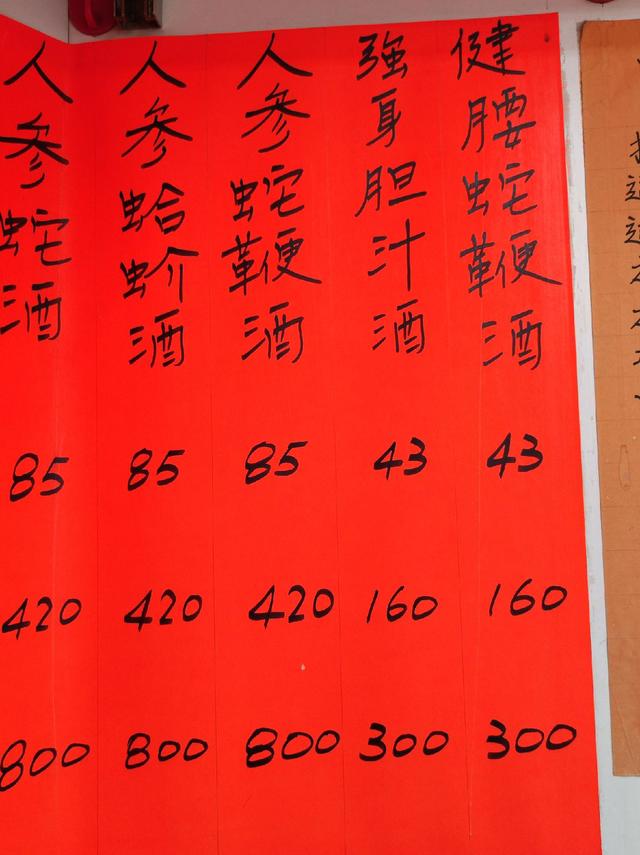 健腰蛇鞭酒 43 160 300
強身胆汁酒 43 160 300
人参蛇鞭酒 85 420 800
人参蛤蚧酒 85 420 800
人参蛇酒 85 420 800